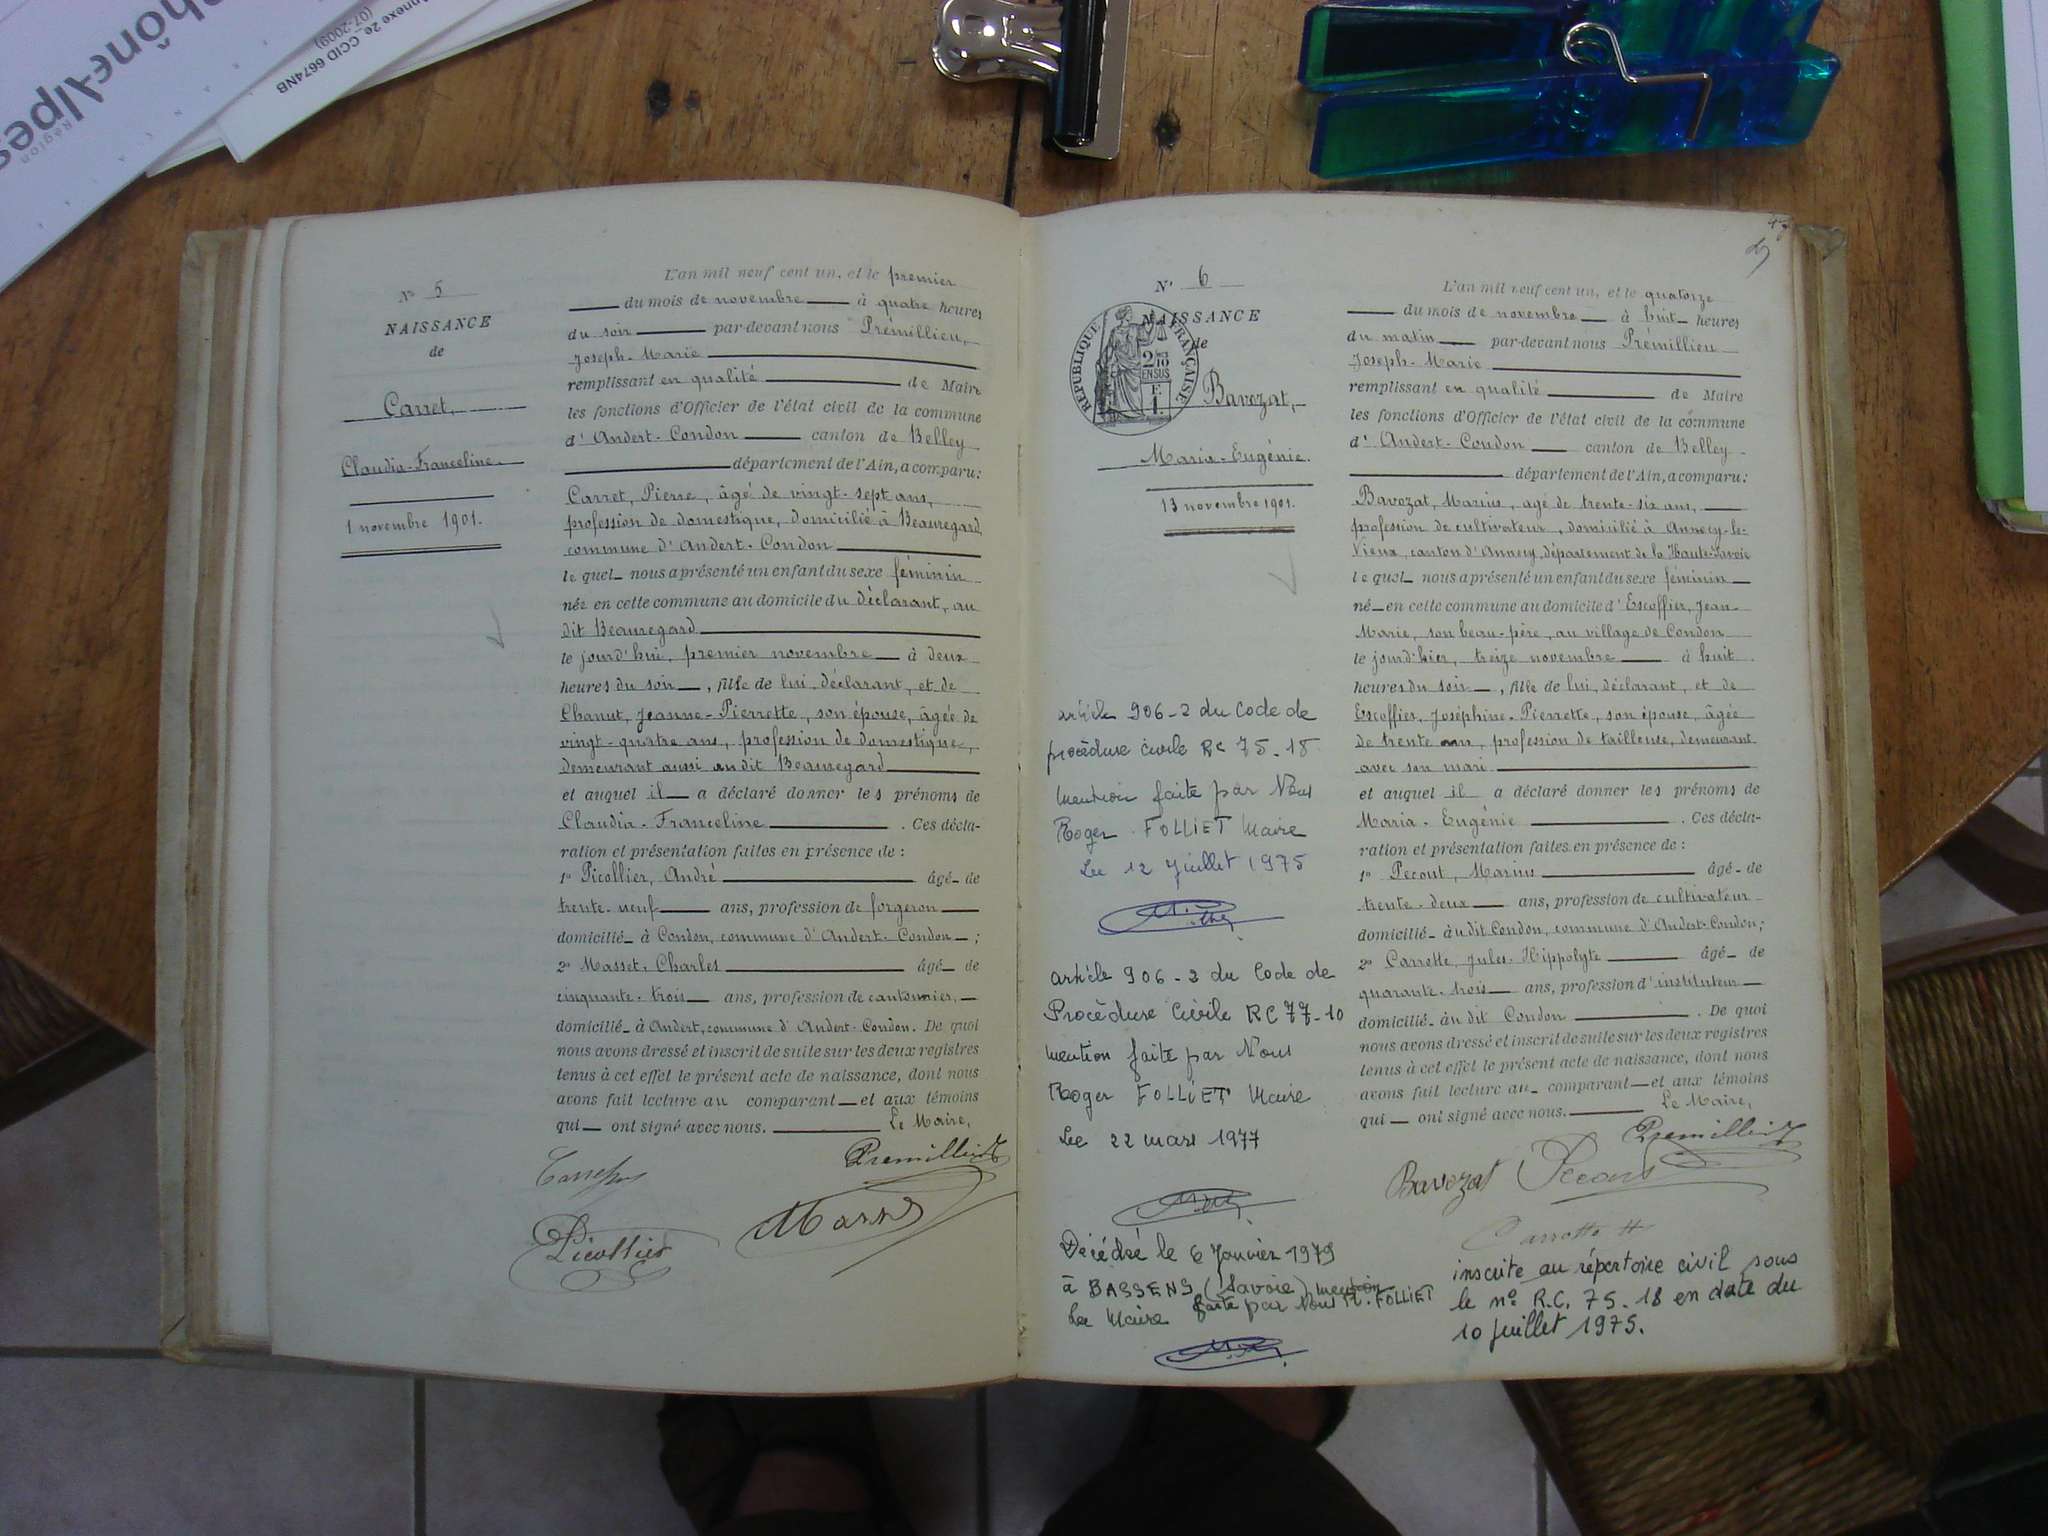 hône-Alpes
Région
Annexe 2e_CCID 6674NB
(07-2009)
N° 5
NAISSANCE
de
Carret,
Claudia-Franceline.
1 novembre 1901.
L'an mil neuf cent un, et le premier
du mois de novembre à quatre heures
du soir par-devant nous Prémillieu,
Joseph-Marie
remplissant en qualité de Maire
les fonctions d'Officier de l'état civil de la commune
d'Andert-Condon canton de Belley
département de l'Ain, a comparu:
Carret, Pierre, âgé de vingt-sept ans,
profession de domestique, domicilié à Beauregard,
commune d'Andert-Condon
lequel nous a présenté un enfant du sexe féminin
née en cette commune au domicile du déclarant, au
dit Beauregard
le jourd'hui, premier novembre à deux
heures du soir, fille de lui, déclarant, et de
Chanut, Jeanne-Pierrette, son épouse, âgée de
vingt-quatre ans, profession de domestique,
demeurant aussi au dit Beauregard
et auquel il a déclaré donner les prénoms de
Claudia-Franceline. Ces décla-
ration et présentation faites en présence de :
1° Picollier, André âgé de
trente-neuf ans, profession de forgeron
domicilié à Condon, commune d'Andert-Condon ;
2° Masset, Charles âgé de
cinquante-trois ans, profession de cantonnier,
domicilié à Andert, commune d'Andert-Condon. De quoi
nous avons dressé et inscrit de suite sur les deux registres
tenus à cet effet le présent acte de naissance, dont nous
avons fait lecture au comparant et aux témoins
qui ont signé avec nous. Le Maire,
Carret
Premillieu
Picollier
N° 6
NAISSANCE
de
REPUBLIQUE FRANÇAISE
2/10 EN SUS
F 1
Bavozat,
Maria-Eugénie.
13 novembre 1901.
article 906-2 du Code de
procédure civile RC 75-18
mention faite par Nous
Roger FOLLIET Maire
Le 12 Juillet 1975
article 906-2 du Code de
Procédure Civile RC 77-10
mention faite par Nous
Roger FOLLIET Maire
Le 22 mars 1977
Décédée le 6 Janvier 1979
à BASSENS (Savoie) mention
faite par Nous R. FOLLIET
Le Maire
L'an mil neuf cent un, et le quatorze
du mois de novembre à huit heures
du matin par-devant nous Prémillieu
Joseph-Marie
remplissant en qualité de Maire
les fonctions d'Officier de l'état civil de la commune
d'Andert-Condon canton de Belley
département de l'Ain, a comparu:
Bavozat, Marius, âgé de trente-six ans,
profession de cultivateur, domicilié à Annecy-le-
Vieux, canton d'Annecy, département de la Haute-Savoie
lequel nous a présenté un enfant du sexe féminin
né en cette commune au domicile d'Escoffier, Jean-
Marie, son beau-père, au village de Condon
le jourd'hier, treize novembre à huit
heures du soir, fille de lui, déclarant, et de
Escoffier, Joséphine-Pierrette, son épouse, âgée
de trente ans, profession de tailleuse, demeurant
avec son mari
et auquel il a déclaré donner les prénoms de
Maria-Eugénie. Ces décla-
ration et présentation faites en présence de :
1° Pecout, Marius âgé de
trente-deux ans, profession de cultivateur
domicilié au dit Condon, commune d'Andert-Condon;
2° Carrotte, Jules-Hippolyte âgé de
quarante-trois ans, profession d'instituteur
domicilié au dit Condon. De quoi
nous avons dressé et inscrit de suite sur les deux registres
tenus à cet effet le présent acte de naissance, dont nous
avons fait lecture au comparant et aux témoins
qui ont signé avec nous. Le Maire,
Premillieu
Bavozat Pecout
Carrotte H
inscrite au répertoire civil sous
le n° R.C. 75.18 en date du
10 juillet 1975.